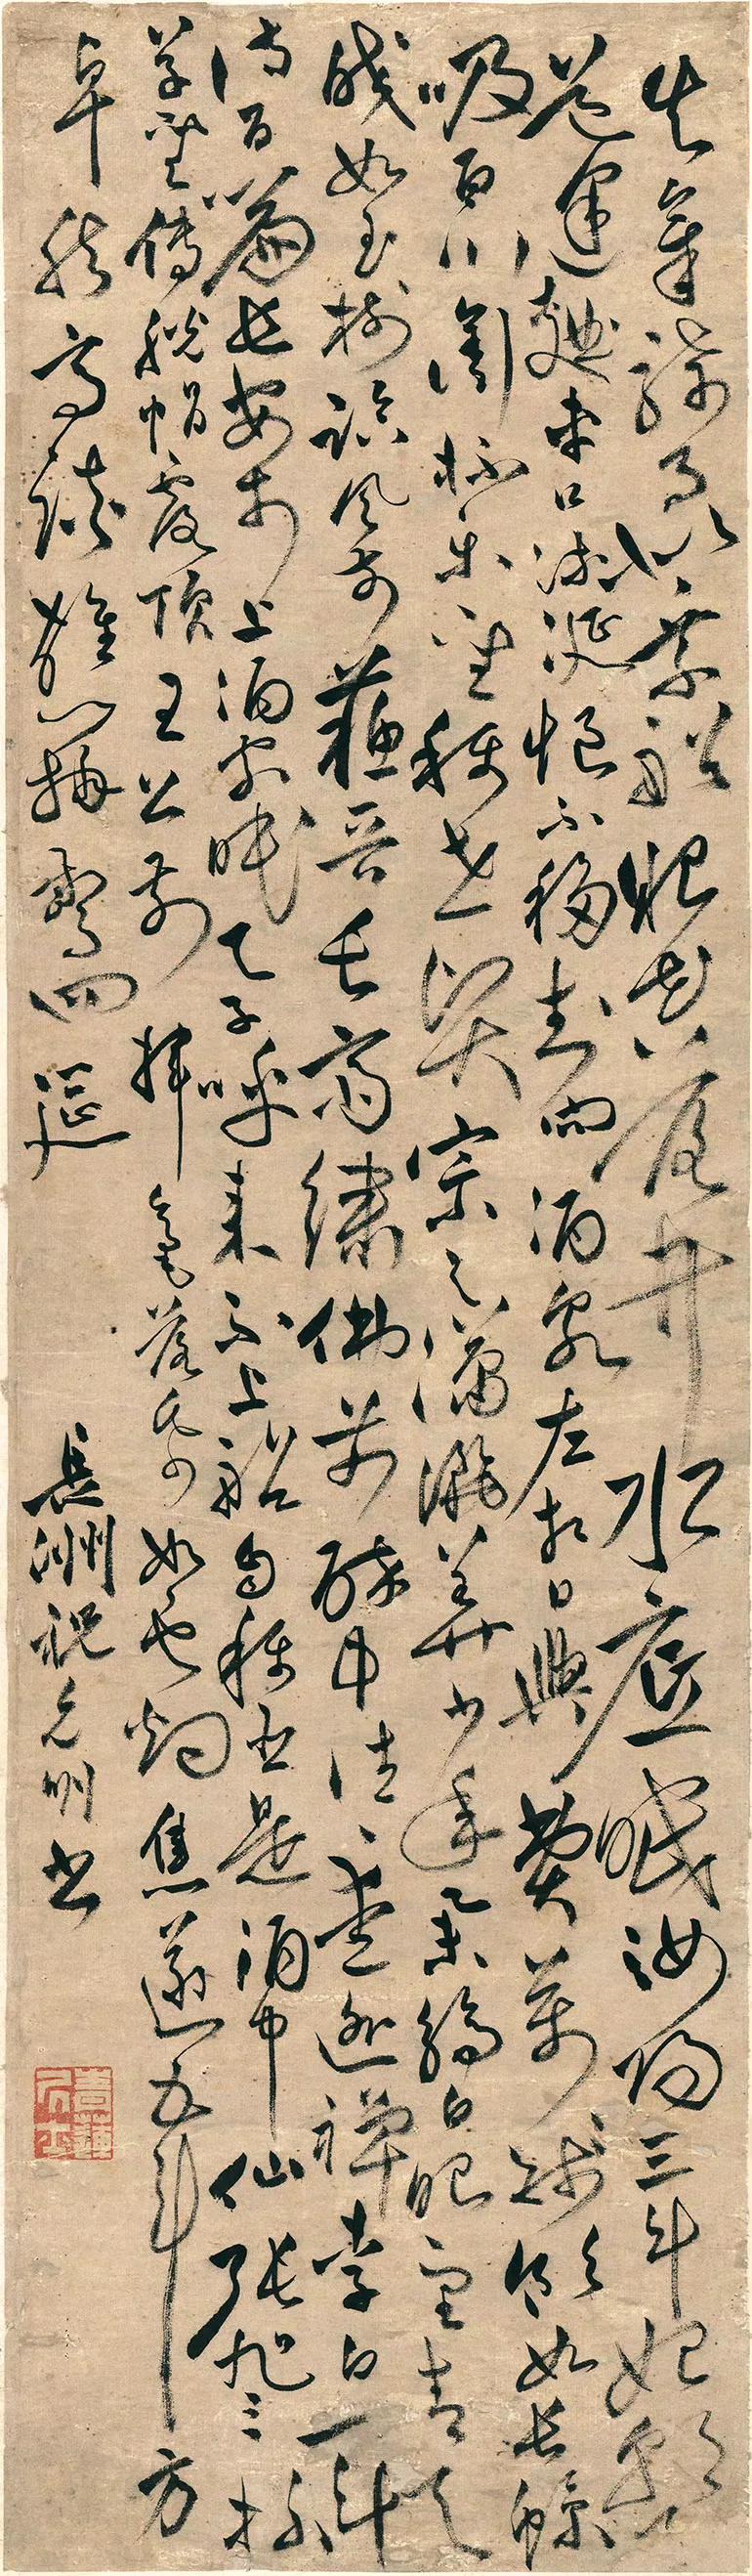 知章骑马似乘船眼花落井水底眠汝陽三斗始朝天
道逢麹車口流涎恨不移封向酒泉左相日興費萬錢飲如長鯨
吸百川銜杯樂聖稱世賢宗之瀟灑美少年舉觴白眼望青天
皎如玉樹臨風前蘇晉長齋繡佛前醉中往往愛逃禪李白一斗
詩百篇長安市上酒家眠天子呼來不上船自稱臣是酒中仙張旭三杯
草聖傳脱帽露頂王公前揮毫落紙如雲煙焦遂五斗方
卓然高談雄辯驚四筵
長洲祝允明書